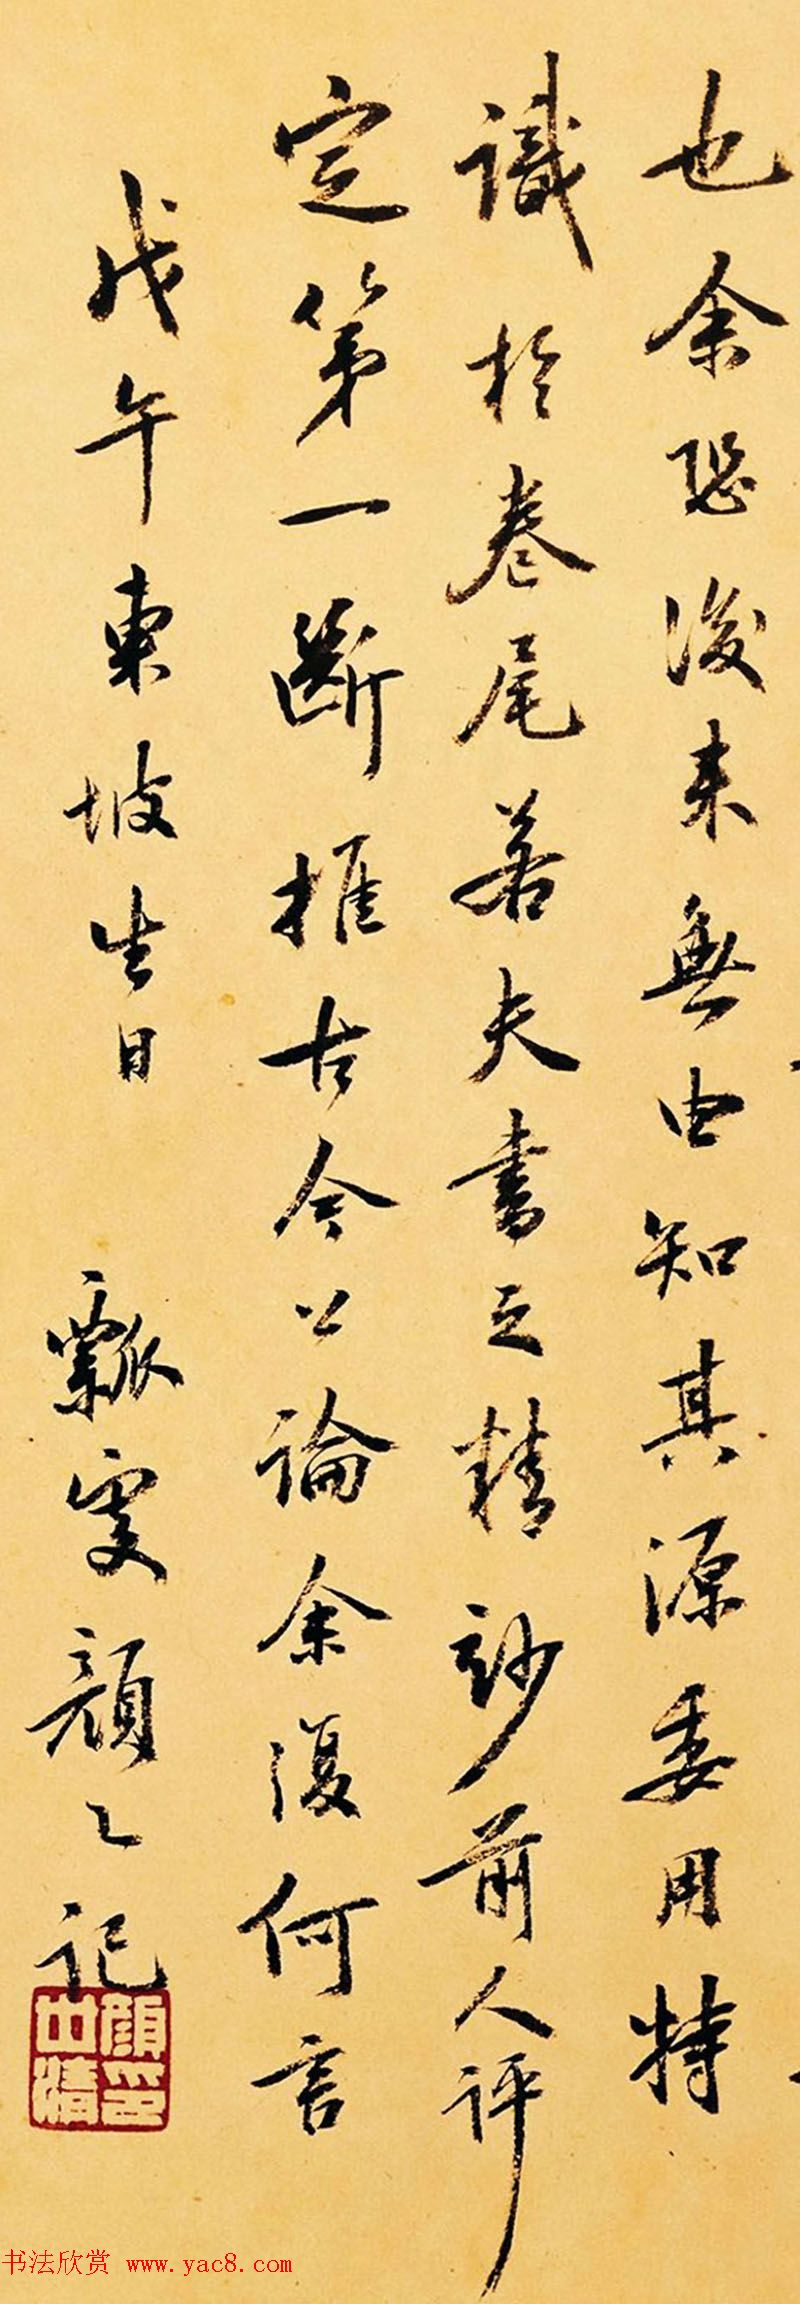 也余恐後來無由知其源委用特
識於卷尾若夫書之精妙前人評
定第一斷推古今公論余復何言
戊午東坡生日 瓢叟顏之記
顏世清印
书法欣赏 www.yac8.com